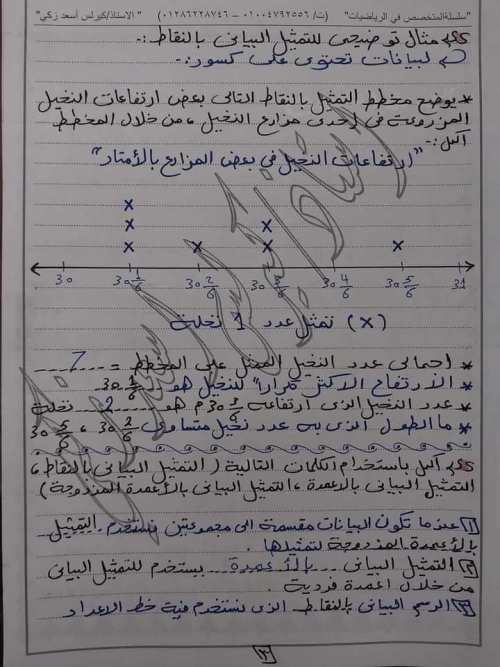 "سلسلة المتخصص في الرياضيات" (ت/ ٠١٠٠٤٧٩٢٥٥٦ – ٠١٢٨٦٢٢٨٧٤٦) "الاستاذ/كيرلس أسعد زكي"
مثال توضيحى للتمثيل البيانى بالنقاط :-
لبيانات تحتوى على كسور :-
* يوضح مخطط التمثيل بالنقاط التالى بعض ارتفاعات النخيل
المزروعة فى إحدى مزارع النخيل ، من خلال المخطط
أكمل :-
"ارتفاعات النخيل فى بعض المزارع بالأمتار"
x
x x
x x x x
30 30 1/6 30 2/6 30 3/6 30 4/6 30 5/6 31
(x) تمثل عدد 1 نخلة
* إجمالى عدد النخيل الممثل على المخطط = 7
* الارتفاع الأكثر تكراراً للنخيل هو 30 1/6
* عدد النخيل الذى ارتفاعه 30 3/6 م هو 2 نخلة
* ما الطول الذى به عدد نخيل متساوى 30 2/6 ، 30 5/6
أكمل باستخدام الكلمات التالية (التمثيل البيانى بالنقاط ،
التمثيل البيانى بالأعمدة ، التمثيل البيانى بالأعمدة المزدوجة)
١ عندما تكون البيانات مقسمة الى مجموعتين نستخدم التمثيل
بالأعمدة المزدوجة لتمثيلها .
٢ التمثيل البيانى بالأعمدة يستخدم للتمثيل البيانى
من خلال أعمدة فردية .
٣ الرسم البيانى بالنقاط الذى نستخدم فيه خط الاعداد